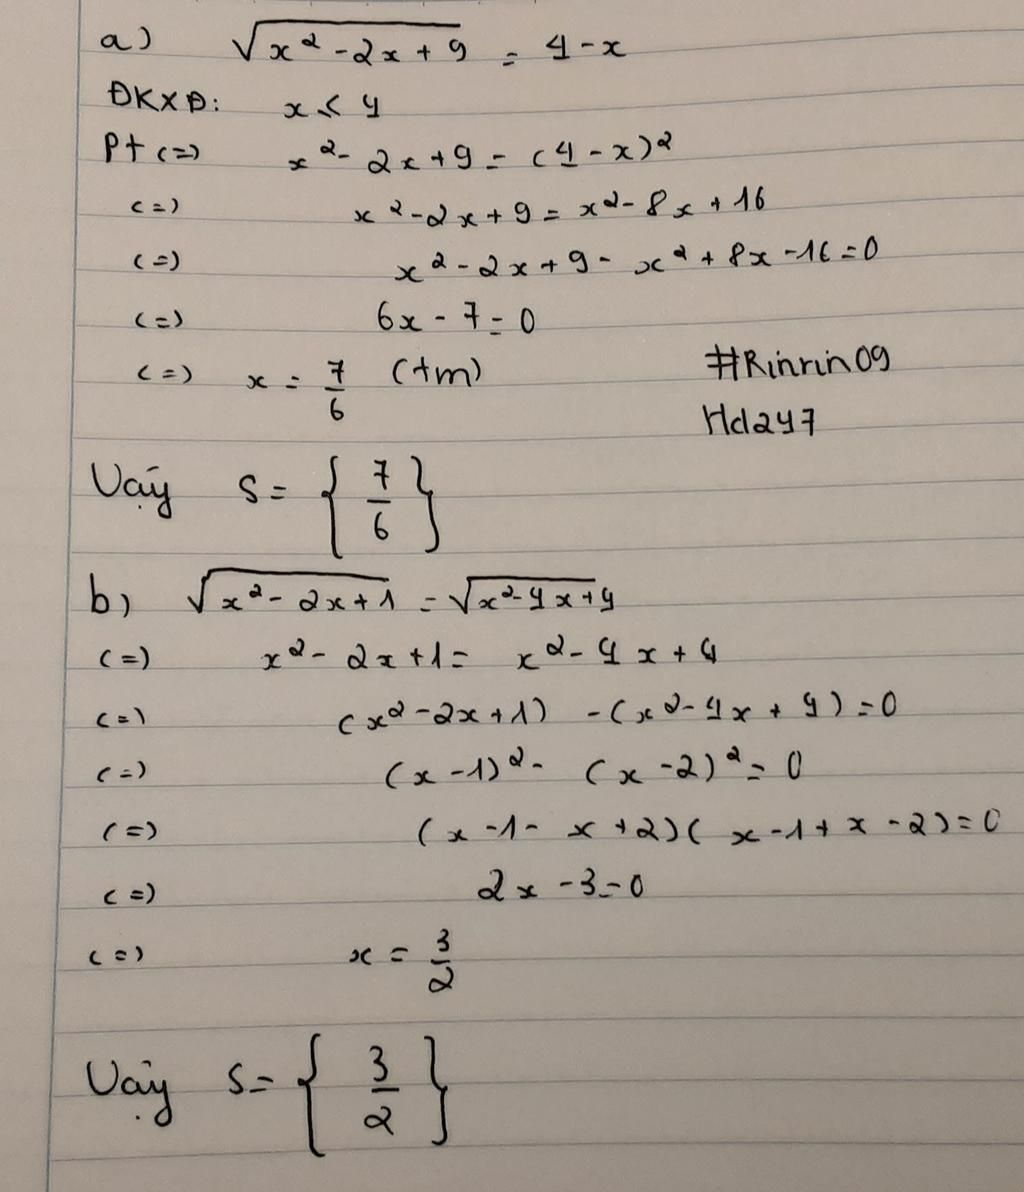 a) √(x² - 2x + 9) = 4 - x
ĐKXĐ: x ≤ 4
Pt (=) x² - 2x + 9 = (4 - x)²
(=) x² - 2x + 9 = x² - 8x + 16
(=) x² - 2x + 9 - x² + 8x - 16 = 0
(=) 6x - 7 = 0
(=) x = 7/6 (tm)
#Rinrin09
Hd247
Vậy S = {7/6}
b) √(x² - 2x + 1) = √(x² - 4x + 4)
(=) x² - 2x + 1 = x² - 4x + 4
(=) (x² - 2x + 1) - (x² - 4x + 4) = 0
(=) (x - 1)² - (x - 2)² = 0
(=) (x - 1 - x + 2)(x - 1 + x - 2) = 0
(=) 2x - 3 = 0
(=) x = 3/2
Vậy S = {3/2}